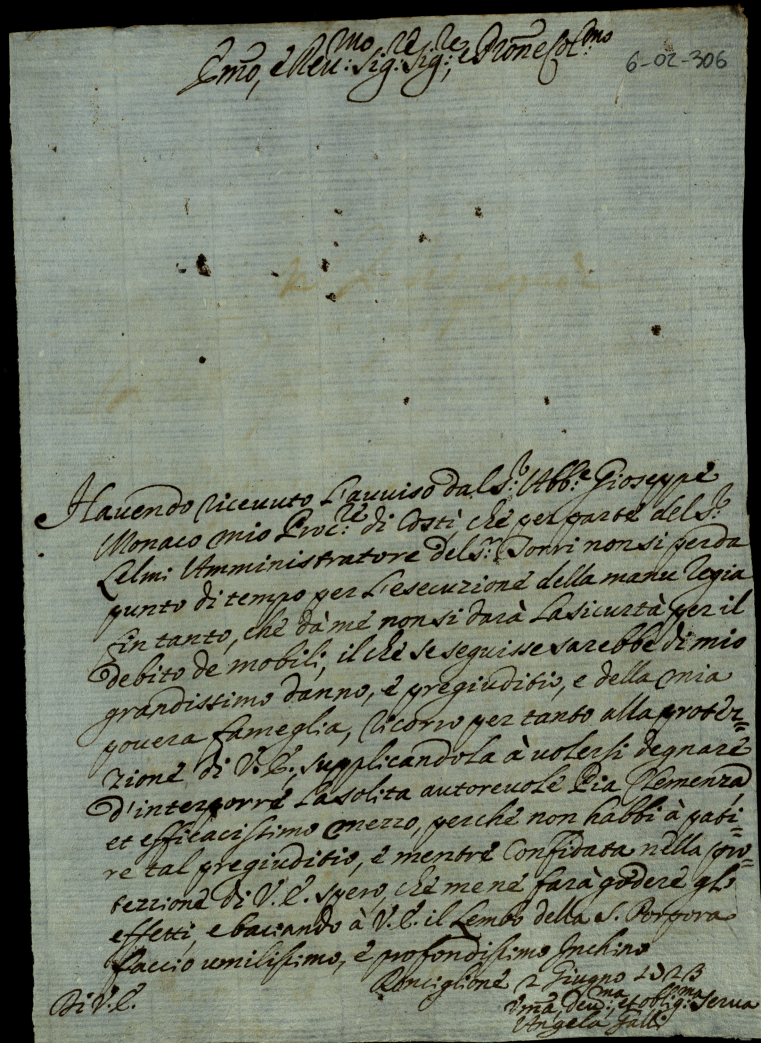 Em̃o, e Reu:mo Sig:re Sig:re, e Prone Col:mo
6-02-306
Hauendo riceuuto l'auuiso dal S.r Abb.e Gioseppe
Monaco mio Proc:re di Costì che per parte del S.r
Lelmi Amministratore del S.r Torri non si perda
punto di tempo per l'esecuzione della manu Regia
fin tanto, che dà me non si darà la sicurtà per il
debito de mobili, il che se seguisse sarebbe di mio
grandissimo danno, e pregiuditio, e della mia
pouera fameglia, ricorro per tanto alla protez=
zione di V.E. supplicandola à uolersi degnare
d'interporre la solita autoreuole Pia Clemenza,
et efficacissimo mezzo, perche non habbi à pati=
re tal pregiuditio, e mentre Confidata nella pro=
tezzione di V.E. spero, che me ne farà godere gl'
effetti, e baciando à V.E. il Lembo della S. Porpora
faccio umilissimo, e profondissimo Inchino
Ronciglione 2 Giugno
Di V.E.
Vm̃a, Deu:ma, et obblig:ma Serua
Angela Galli